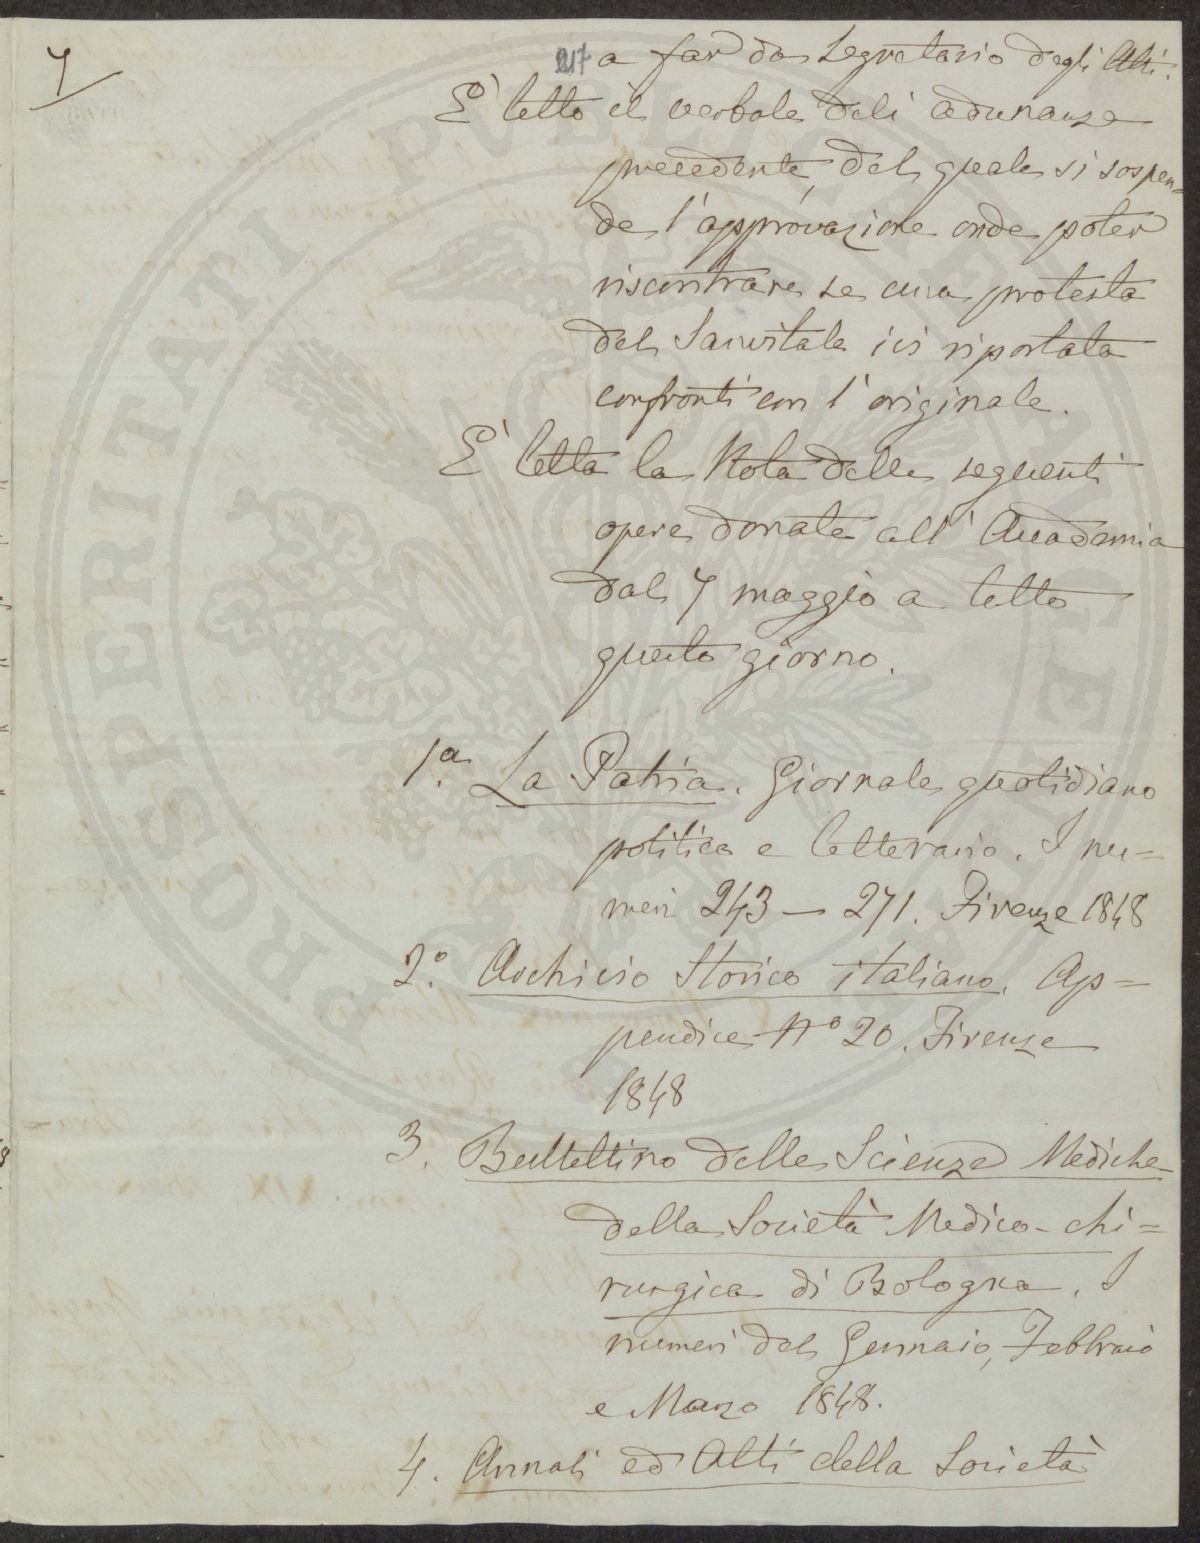 7
217
a far da Segretario degli Atti.
È letto il verbale dell' adunanza
precedente, del quale si sospen=
de l'approvazione onde poter
riscontrare se una protesta
del Sanvitale ivi riportata
confronti con l'originale.
È letta la Nota delle seguenti
opere donate all' Accademia
dal 7 maggio a tutto
questo giorno.
1.a La Patria. Giornale quotidiano
politico e letterario. I nu=
meri 243 — 271. Firenze 1848
2.o Archivio Storico italiano. Ap=
pendice No 20. Firenze
1848
3. Bullettino delle Scienze Mediche
della Società Medico-chi=
rurgica di Bologna. I
numeri del Gennaio, Febbraio
e Marzo 1848.
4. Annali ed Atti della Società
PROSPERITATI PUBLICAE AUGENDAE